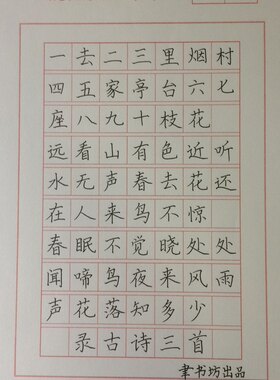 一去二三里烟村
四五家亭台六七
座八九十枝花
远看山有色近听
水无声春去花还
在人来鸟不惊
春眠不觉晓处处
闻啼鸟夜来风雨
声花落知多少
录古诗三首
聿书坊出品